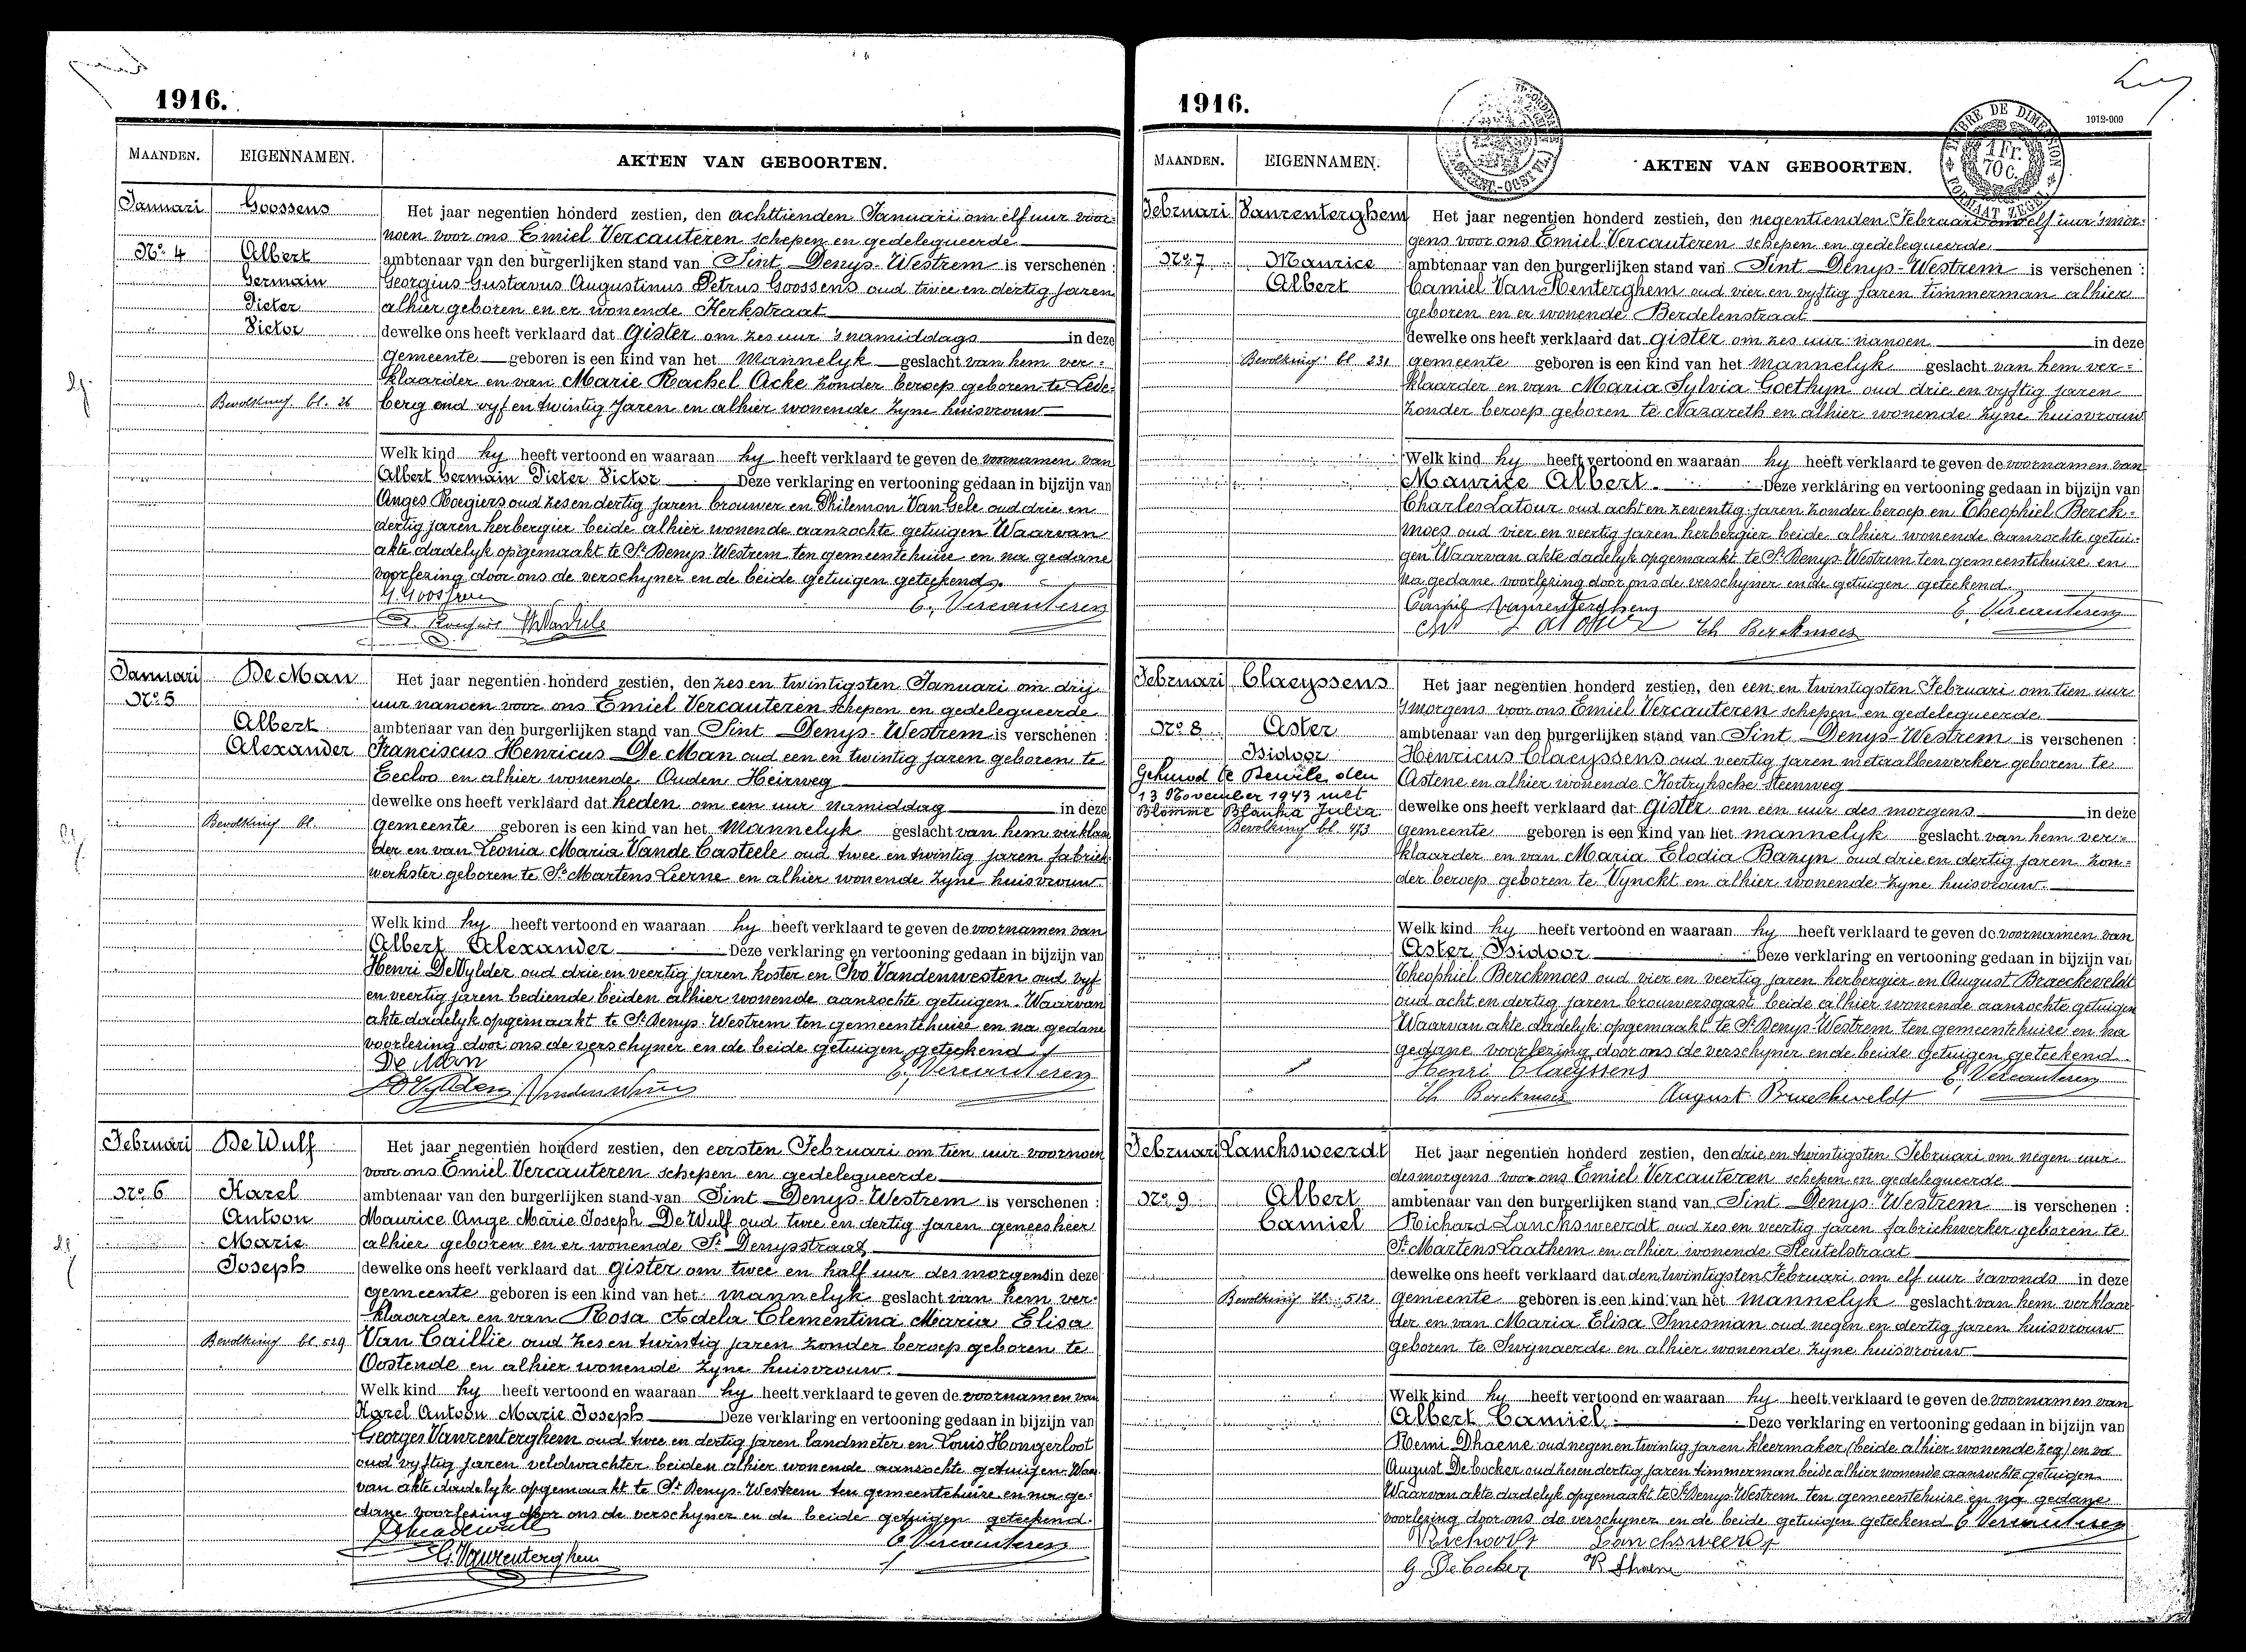 1916.
MAANDEN.
EIGENNAMEN.
AKTEN VAN GEBOORTEN.
Januari
Goossens
Nº. 4
Albert
Germain
Pieter
Victor
Bevolking bl. 26
Het jaar negentien honderd zestien, den achttienden Januari om elf uur voor-
noen voor ons Emiel Vercauteren schepen en gedelegueerde
ambtenaar van den burgerlijken stand van Sint Denys-Westrem is verschenen :
Georgius Gustavus Augustinus Petrus Goossens oud twee en dertig jaren
alhier geboren en er wonende Kerkstraat
dewelke ons heeft verklaard dat Gister om zes uur 's namiddags in deze
gemeente geboren is een kind van het Mannelyk geslacht van hem ver-
klaarder en van Marie Rachel Acke zonder beroep geboren te Lede-
berg oud vyf en twintig Jaren en alhier wonende zyne huisvrouw
Welk kind hy heeft vertoond en waaraan hy heeft verklaard te geven de voornamen van
Albert Germain Pieter Victor Deze verklaring en vertooning gedaan in bijzijn van
Anges Roegiers oud zes en dertig jaren brouwer en Philemon Van Gele oud drie en
dertig jaren herbergier beide alhier wonende aanzochte getuigen Waarvan
akte dadelyk opgemaakt te St Denys Westrem ten gemeentehuize en na gedane
voorlezing door ons de verschyner en de beide getuigen geteekend.
G. Goossens
E. Vercauteren
Januari
De Man
Nº. 5
Albert
Alexander
Bevolking bl.
Het jaar negentien honderd zestien, den zes en twintigsten Januari om drij
uur nanoen voor ons Emiel Vercauteren schepen en gedelegueerde
ambtenaar van den burgerlijken stand van Sint Denys-Westrem is verschenen :
Franciscus Henricus De Man oud een en twintig jaren geboren te
Eecloo en alhier wonende Ouden Heirweg
dewelke ons heeft verklaard dat heden om een uur namiddag in deze
gemeente geboren is een kind van het Mannelyk geslacht van hem verklaar
der en van Leonia Maria Vande Casteele oud twee en twintig jaren fabriek
werkster geboren te St Martens Leerne en alhier wonende zyne huisvrouw.
Welk kind hy heeft vertoond en waaraan hy heeft verklaard te geven de voornamen van
Albert Alexander Deze verklaring en vertooning gedaan in bijzijn van
Henri De Vylder oud drie en veertig jaren koster en Ivo Vandenwesten oud vyf
en veertig jaren bediende beiden alhier wonende aanzochte getuigen. Waarvan
akte dadelyk opgemaakt te St Denys-Westrem ten gemeentehuize en na gedane
voorlezing door ons de verschyner en de beide getuigen geteekend
De Man
E. Vercauteren
Februari
De Wulf
Nº. 6
Karel
Antoon
Marie
Joseph
Bevolking bl. 529
Het jaar negentien honderd zestien, den eersten Februari om tien uur voornoen
voor ons Emiel Vercauteren schepen en gedelegueerde
ambtenaar van den burgerlijken stand van Sint Denys-Westrem is verschenen :
Maurice Ange Marie Joseph De Wulf oud twee en dertig jaren geneesheer
alhier geboren en er wonende St Denysstraat
dewelke ons heeft verklaard dat gister om twee en half uur des morgens in deze
gemeente geboren is een kind van het mannelyk geslacht van hem ver-
klaarder en van Rosa Adela Clementina Maria Elisa
Van Caillie oud zes en twintig jaren zonder beroep geboren te
Oostende en alhier wonende zyne huisvrouw.
Welk kind hy heeft vertoond en waaraan hy heeft verklaard te geven de voornamen van
Karel Antoon Marie Joseph Deze verklaring en vertooning gedaan in bijzijn van
Georges Vanrenterghem oud twee en dertig jaren landmeter en Louis Hongerloot
oud vyftig jaren veldwachter beiden alhier wonende aanzochte getuigen Waar
van akte dadelyk opgemaakt te St Denys-Westrem ten gemeentehuize en na ge-
dane voorlezing door ons de verschyner en de beide getuigen geteekend.
E. Vercauteren
G. Vanrenterghem
1916.
1912-909
TIMBRE DE DIMENSION
1 Fr.
70 C.
FORMAAT ZEGEL
MAANDEN.
EIGENNAMEN.
AKTEN VAN GEBOORTEN.
Februari
Vanrenterghem
Nº. 7
Maurice
Albert
Bevolking bl 231
Het jaar negentien honderd zestien, den negentienden Februari om elf uur 's mor-
gens voor ons Emiel Vercauteren schepen en gedelegueerde
ambtenaar van den burgerlijken stand van Sint Denys-Westrem is verschenen :
Camiel Van Renterghem oud vier en vyftig jaren timmerman alhier
geboren en er wonende Berdelenstraat
dewelke ons heeft verklaard dat gister om zes uur nanoen in deze
gemeente geboren is een kind van het mannelyk geslacht van hem ver-
klaarder en van Maria Sylvia Goethyn oud drie en vyftig jaren
zonder beroep geboren te Nazareth en alhier wonende zyne huisvrouw
Welk kind hy heeft vertoond en waaraan hy heeft verklaard te geven de voornamen van
Maurice Albert Deze verklaring en vertooning gedaan in bijzijn van
Charles Latour oud acht en zeventig jaren zonder beroep en Theophiel Berck-
moes oud vier en veertig jaren herbergier beide alhier wonende aanzochte getui-
gen Waarvan akte dadelyk opgemaakt te St Denys Westrem ten gemeentehuize en
na gedane voorlezing door ons de verschyner en de getuigen geteekend.
Camiel Vanrenterghem
E. Vercauteren
Ch Latour
Th Berckmoes
Februari
Claeyssens
Nº. 8
Aster
Isidoor
Gehuwd te Deurle den
13 November 1943 met
Blomme Blanka Julia.
Bevolking bl. 473
Het jaar negentien honderd zestien, den een en twintigsten Februari om tien uur
's morgens voor ons Emiel Vercauteren schepen en gedelegueerde
ambtenaar van den burgerlijken stand van Sint Denys-Westrem is verschenen :
Henricus Claeyssens oud veertig jaren metaalbewerker geboren te
Astene en alhier wonende Kortryksche Steenweg
dewelke ons heeft verklaard dat Gister om een uur des morgens in deze
gemeente geboren is een kind van het mannelyk geslacht van hem ver-
klaarder en van Maria Elodia Bazyn oud drie en dertig jaren zon-
der beroep geboren te Vynckt en alhier wonende zyne huisvrouw.
Welk kind hy heeft vertoond en waaraan hy heeft verklaard te geven de voornamen van
Aster Isidoor Deze verklaring en vertooning gedaan in bijzijn van
Theophiel Berckmoes oud vier en veertig jaren herbergier en August Braeckeveldt
oud acht en dertig jaren brouwersgast beide alhier wonende aanzochte getuigen
Waarvan akte dadelyk opgemaakt te St Denys-Westrem ten gemeentehuize en na
gedane voorlezing door ons de verschyner en de beide getuigen geteekend.
Henri Claeyssens
E. Vercauteren
Th Berckmoes
August Braeckeveldt
Februari
Lanchsweerdt
Nº. 9
Albert
Camiel
Bevolking bl. 512
Het jaar negentien honderd zestien, den drie en twintigsten Februari om negen uur
des morgens voor ons Emiel Vercauteren schepen en gedelegueerde
ambtenaar van den burgerlijken stand van Sint Denys-Westrem is verschenen :
Richard Lanchsweerdt oud zes en veertig jaren fabriekwerker geboren te
St Martens Laathem en alhier wonende Sleutelstraat
dewelke ons heeft verklaard dat den twintigsten Februari om elf uur 's avonds in deze
gemeente geboren is een kind van het mannelyk geslacht van hem verklaar
der en van Maria Elisa Snesman oud negen en dertig jaren huisvrouw
geboren te Swynaerde en alhier wonende zyne huisvrouw
Welk kind hy heeft vertoond en waaraan hy heeft verklaard te geven de voornamen van
Albert Camiel Deze verklaring en vertooning gedaan in bijzijn van
Remi Dhaene oud negen en twintig jaren kleermaker (beide alhier wonende zeg) en
August De Cocker oud zes en dertig jaren timmerman beide alhier wonende aanzochte getuigen
Waarvan akte dadelyk opgemaakt te St Denys-Westrem ten gemeentehuize en na gedane
voorlezing door ons de verschyner en de beide getuigen geteekend E Vercauteren
Richard Lanchsweerdt
G De Cocker
R Dhaene